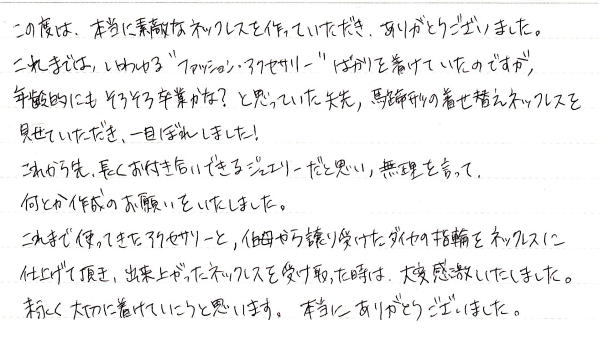 この度は、本当に素敵なネックレスを作っていただき、ありがとうございました。
これまでは、いわゆる"ファッション・アクセサリー"ばかりを着けていたのですが、
年齢的にもそろそろ卒業かな?と思っていた矢先、馬蹄形の着せ替えネックレスを
見せていただき、一目ぼれしました!
これから先、長くお付き合いできるジュエリーだと思い、無理を言って、
何とか作成のお願いをいたしました。
これまで使ってきたアクセサリーと、伯母から譲り受けたダイヤの指輪をネックレスに
仕上げて頂き、出来上がったネックレスを受け取った時は、大変感激いたしました。
末永く大切に着けていこうと思います。本当にありがとうございました。